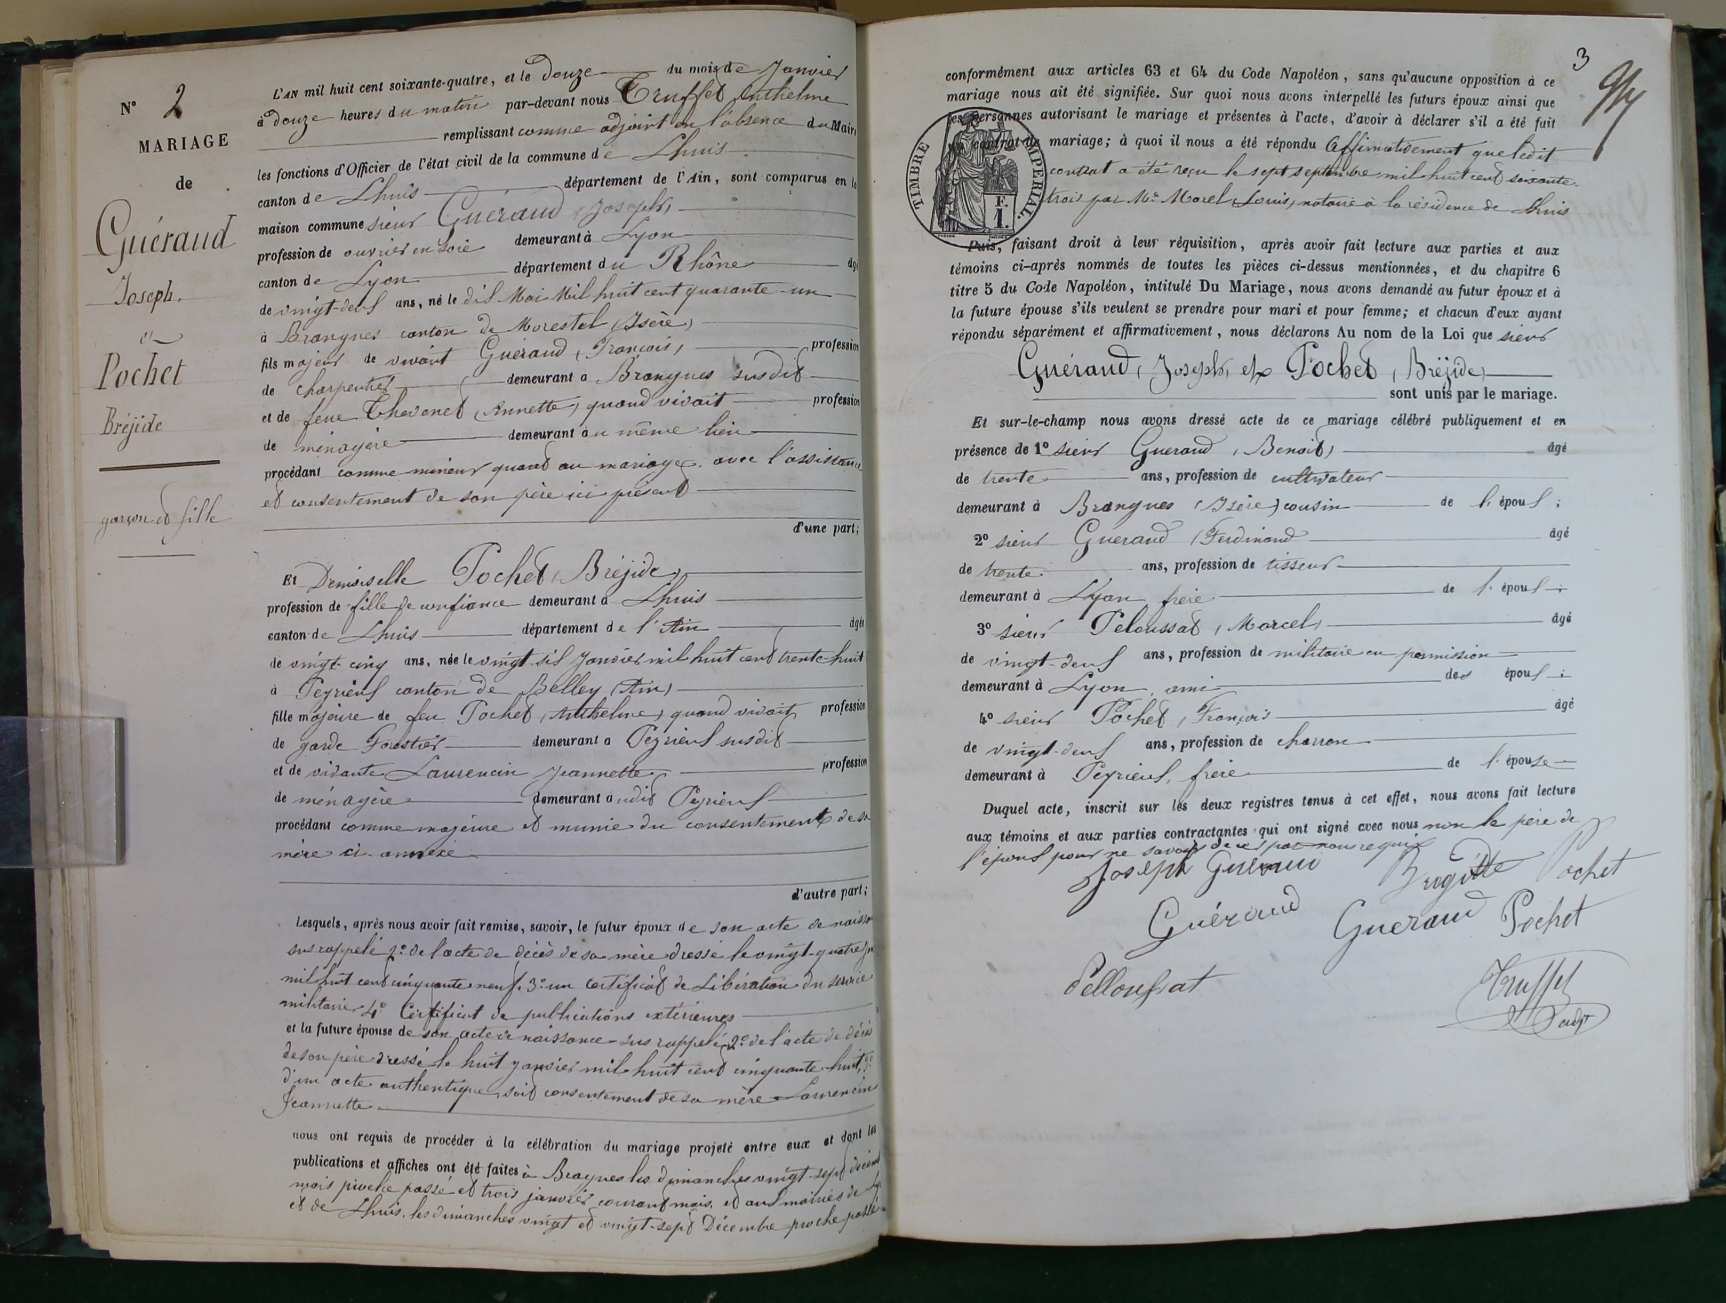 N° 2
MARIAGE
de
Guéraud
Joseph.
et
Pochet
Bréjide
garçon et fille
L'AN mil huit cent soixante-quatre, et le douze du mois de Janvier
à douze heures du matin par-devant nous Truffet Anthelme
remplissant comme adjoint en l'absence du Maire
les fonctions d'Officier de l'état civil de la commune de Lhuis
canton de Lhuis département de l'Ain, sont comparus en la
maison commune sieur Guéraud (Joseph)
profession de ouvrier en soie demeurant à Lyon
canton de Lyon département du Rhône âgé
de vingt-deux ans, né le dix Mai Mil huit cent quarante-un
à Brangues canton de Morestel (Isère)
fils majeur de vivant Guéraud (François) profession
de charpentier demeurant à Brangues susdit
et de feue Thevenet (Annette) quand vivait profession
de ménagère demeurant au même lieu
procédant comme mineur quand au mariage avec l'assistance
et consentement de son père ici présent
d'une part;
Et Demoiselle Pochet (Bréjide)
profession de fille de confiance demeurant à Lhuis
canton de Lhuis département de l'Ain âgée
de vingt-cinq ans, née le vingt-six Janvier mil huit cent trente huit
à Peyrieux canton de Belley (Ain)
fille majeure de feu Pochet (Anthelme) quand vivait profession
de garde Forestier demeurant à Peyrieux susdit
et de vivante Laurencin Jeannette profession
de ménagère demeurant audit Peyrieux
procédant comme majeure et munie du consentement de sa
mère ci-annexé
d'autre part;
Lesquels, après nous avoir fait remise, savoir, le futur époux de son acte de naiss
sus rappelé 2° de l'acte de décès de sa mère dressé le vingt-quatre
mil huit cent cinquante neuf, 3° un certificat de Libération du service
militaire, 4° Certificat de publications extérieures
et la future épouse de son acte de naissance sus rappelé 2° de l'acte de décès
de son père dressé le huit janvier mil huit cent cinquante huit, 3°
d'un acte authentique, soit consentement de sa mère Laurencin
Jeannette
nous ont requis de procéder à la célébration du mariage projeté entre eux et dont les
publications et affiches ont été faites à Bragues les dimanches vingt-sept décem
mois proche passé et trois janvier courant mois, et aux mairies de Ly
et de Lhuis, les dimanches vingt et vingt-sept Décembre proche passé
3
conformément aux articles 63 et 64 du Code Napoléon, sans qu'aucune opposition à ce
mariage nous ait été signifiée. Sur quoi nous avons interpellé les futurs époux ainsi que
les personnes autorisant le mariage et présentes à l'acte, d'avoir à déclarer s'il a été fait
un contrat de mariage; à quoi il nous a été répondu Affirmativement que ledit
contrat a été reçu le sept septembre mil huit cent soixante-
trois par Me Morel (Louis) notaire à la résidence de Lhuis
TIMBRE IMPERIAL.
F.
1.
Puis, faisant droit à leur réquisition, après avoir fait lecture aux parties et aux
témoins ci-après nommés de toutes les pièces ci-dessus mentionnées, et du chapitre 6
titre 5 du Code Napoléon, intitulé Du Mariage, nous avons demandé au futur époux et à
la future épouse s'ils veulent se prendre pour mari et pour femme; et chacun d'eux ayant
répondu séparément et affirmativement, nous déclarons Au nom de la Loi que sieur
Guéraud (Joseph) et Pochet (Bréjide)
sont unis par le mariage.
Et sur-le-champ nous avons dressé acte de ce mariage célébré publiquement et en
présence de 1° sieur Gueraud (Benoit) âgé
de trente ans, profession de cultivateur
demeurant à Brangues (Isère) cousin de l'époux;
2° sieur Gueraud (Ferdinand âgé
de trente ans, profession de tisseur
demeurant à Lyon frère de l'époux;
3° sieur Peloussat (Marcel) âgé
de vingt-deux ans, profession de militaire en permission
demeurant à Lyon, ami des époux;
4° sieur Pochet (François âgé
de vingt-deux ans, profession de charron
demeurant à Peyrieux, frère de l'épouse
Duquel acte, inscrit sur les deux registres tenus à cet effet, nous avons fait lecture
aux témoins et aux parties contractantes qui ont signé avec nous non le père de
l'époux pour ne savoir de ce par nous requis
Joseph Gueraud Brigitte Pochet
Guéraud Gueraud Pochet
Pelloussat Truffet
Adjt